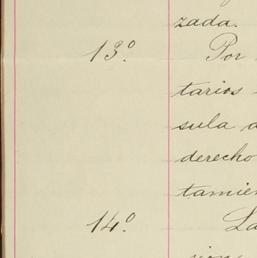 zada.
13º Por
tarios
sula a
derecho
tamien
14º La